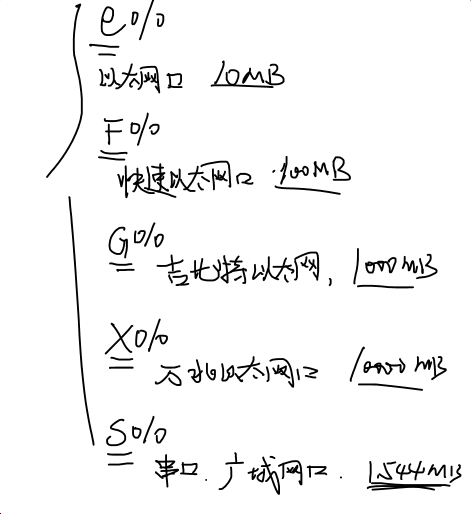 e0/0
以太网口 10MB
F0/0
快速以太网口 100MB
G0/0
吉比特以太网, 1000MB
X0/0
万兆以太网口 10000MB
S0/0
串口. 广域网口. 1.544MB